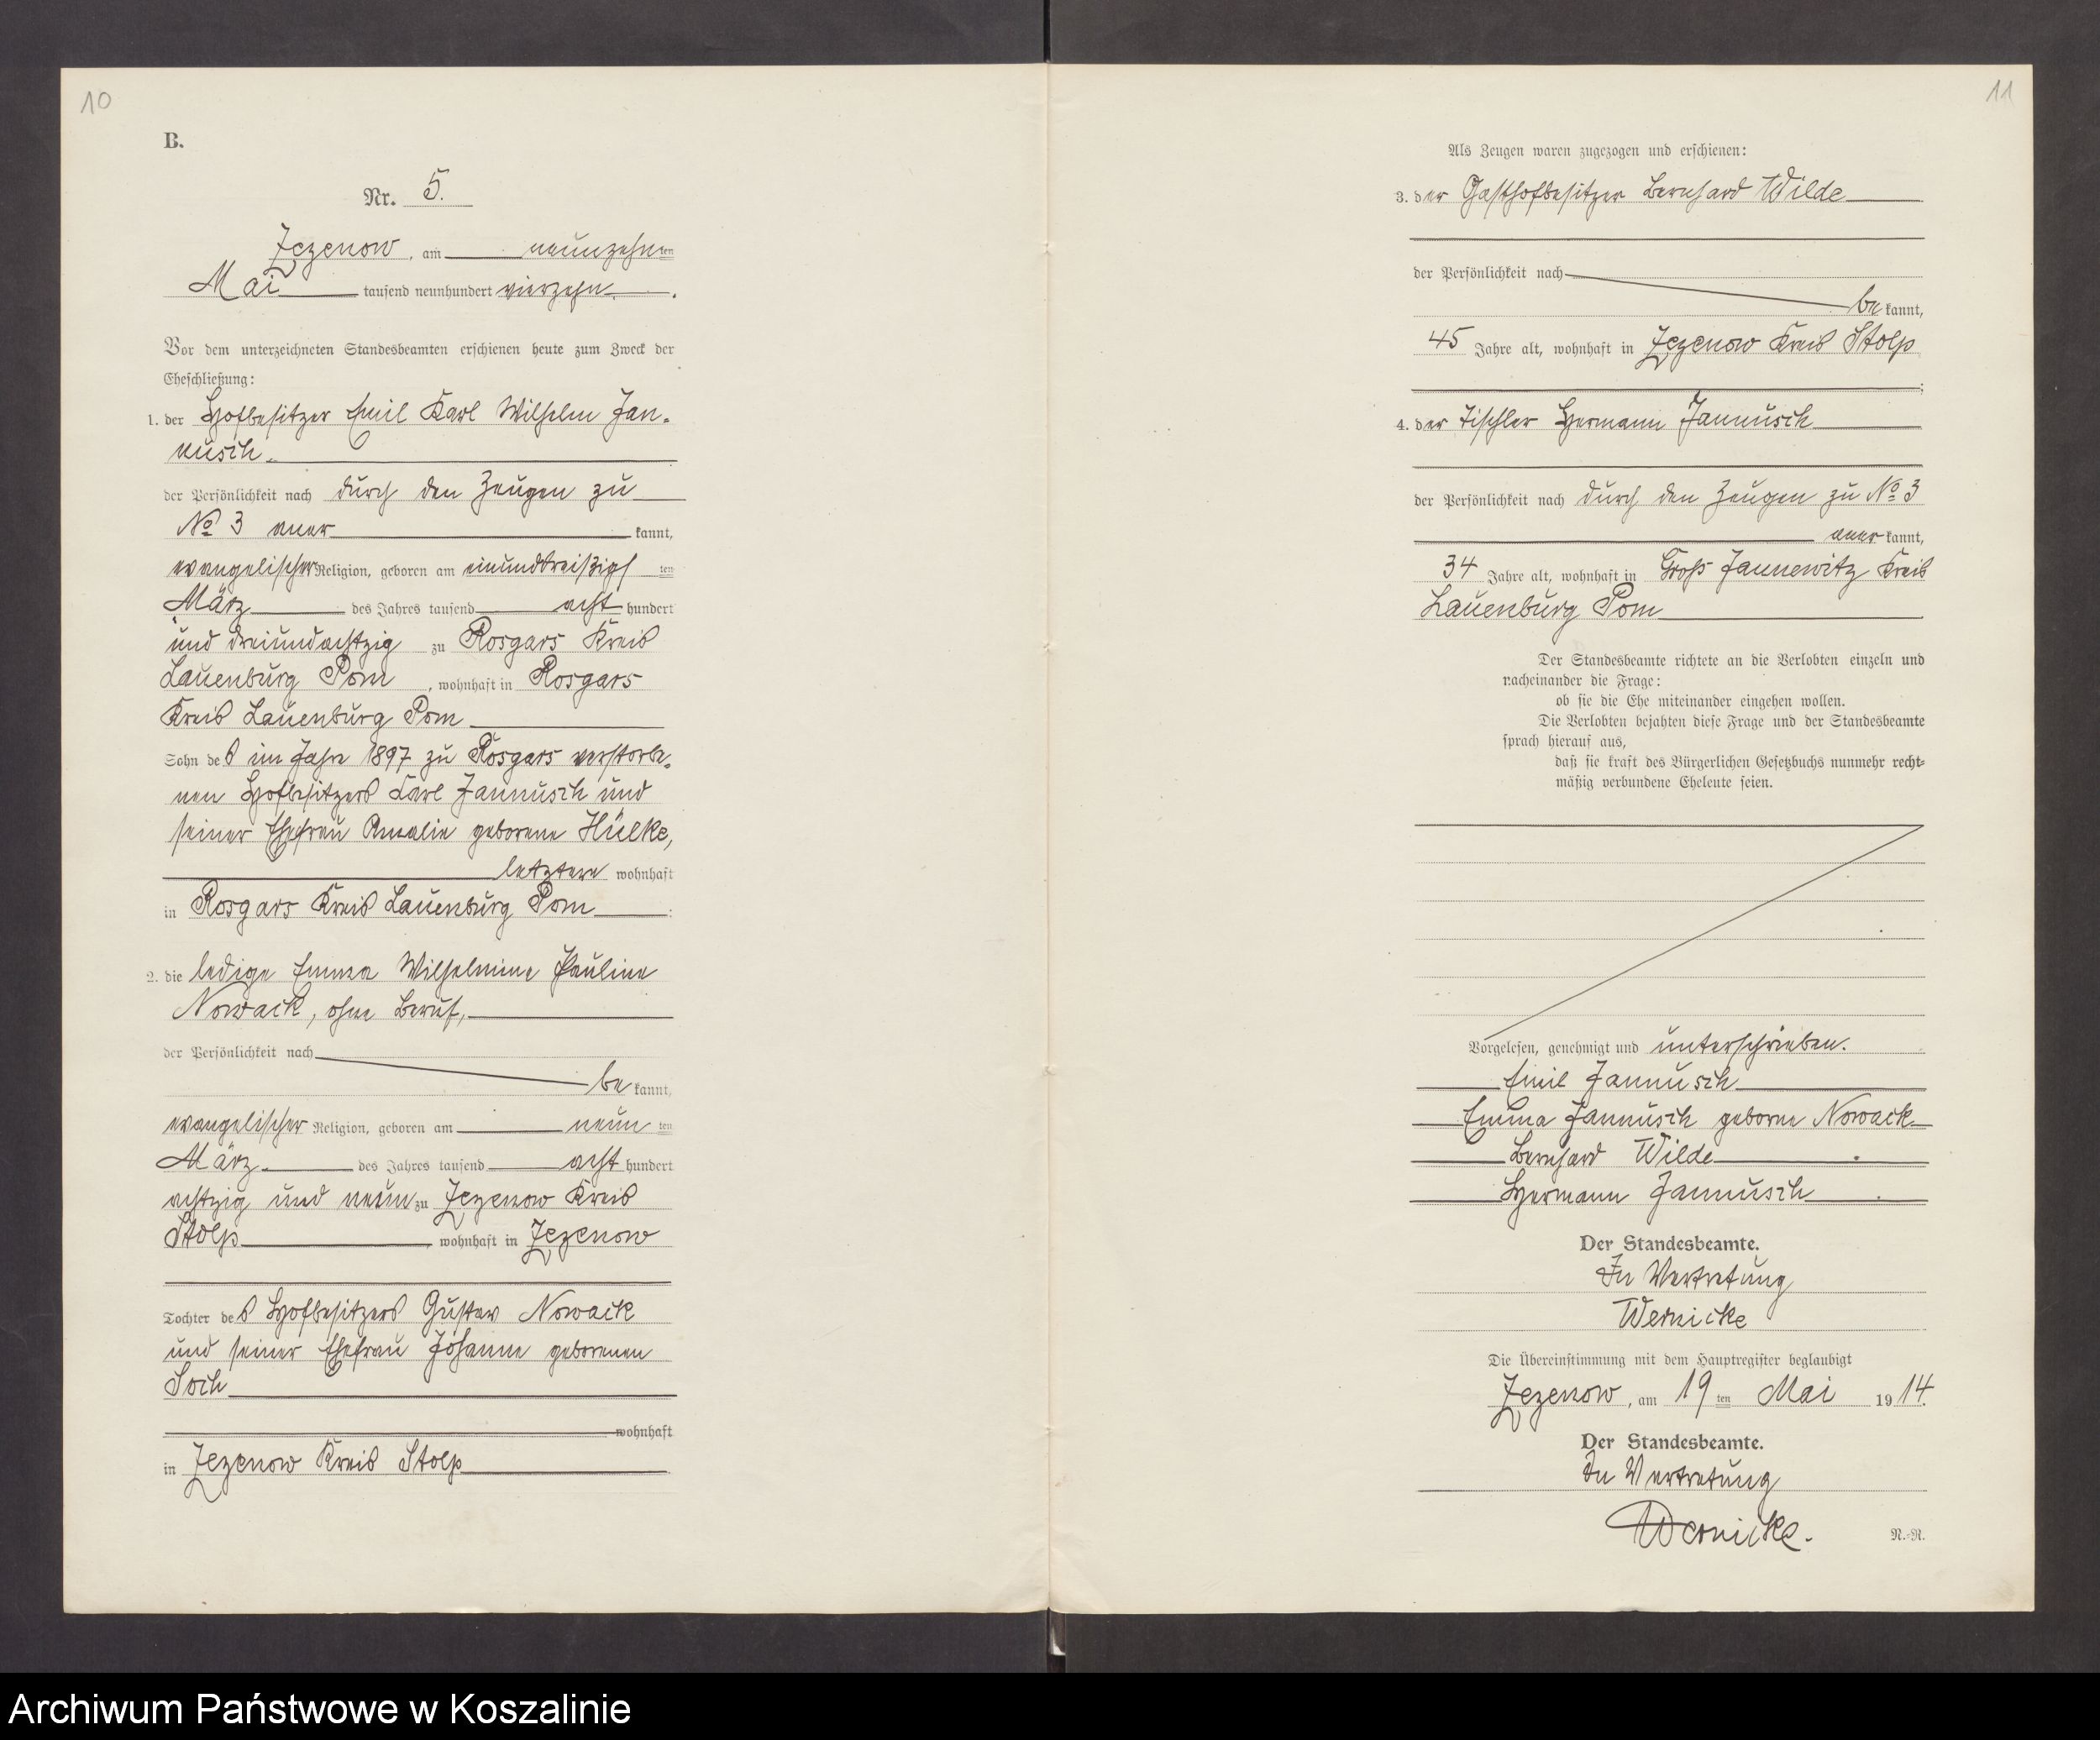 10
B.
Nr. 5.
Zezenow, am neunzehnten
Mai tausend neunhundert vierzehn.
Vor dem unterzeichneten Standesbeamten erschienen heute zum Zweck der
Eheschließung:
1. der Hofbesitzer Emil Karl Wilhelm Jan-
nusch.
der Persönlichkeit nach durch den Zeugen zu
No 3 aner kannt,
evangelischer Religion, geboren am einunddreißigsten
März des Jahres tausend acht hundert
und dreiundachtzig zu Rosgars Kreis
Lauenburg Pom, wohnhaft in Rosgars
Kreis Lauenburg Pom
Sohn des im Jahre 1897 zu Rosgars verstorbe-
nen Hofbesitzers Karl Jannusch und
seiner Ehefrau Amalie geborene Hülke,
letztere wohnhaft
in Rosgars Kreis Lauenburg Pom:
2. die ledige Emma Wilhelmine Pauline
Nowack, ohne Beruf,
der Persönlichkeit nach
be kannt,
evangelischer Religion, geboren am neunten
März des Jahres tausend acht hundert
achtzig und neun zu Zezenow Kreis
Stolp wohnhaft in Zezenow
Tochter des Hofbesitzers Gustav Nowack
und seiner Ehefrau Johanne geborenen
Soch
wohnhaft
in Zezenow Kreis Stolp
11
Als Zeugen waren zugezogen und erschienen:
3. der Gasthofbesitzer Bernhard Wilde
der Persönlichkeit nach
be kannt,
45 Jahre alt, wohnhaft in Zezenow Kreis Stolp
;
4. der Tischler Hermann Jannusch
der Persönlichkeit nach durch den Zeugen zu No 3
aner kannt,
34 Jahre alt, wohnhaft in Gross Jannewitz Kreis
Lauenburg Pom
Der Standesbeamte richtete an die Verlobten einzeln und
nacheinander die Frage:
ob sie die Ehe miteinander eingehen wollen.
Die Verlobten bejahten diese Frage und der Standesbeamte
sprach hierauf aus,
daß sie kraft des Bürgerlichen Gesetzbuchs nunmehr recht-
mäßig verbundene Eheleute seien.
Vorgelesen, genehmigt und unterschrieben.
Emil Jannusch
Emma Jannusch geborne Nowack
Bernhard Wilde
Hermann Jannusch
Der Standesbeamte.
In Vertretung
Wernicke
Die Übereinstimmung mit dem Hauptregister beglaubigt
Zezenow, am 19ten Mai 1914.
Der Standesbeamte.
In Vertretung
Wernicke.
N.-R.
Archiwum Państwowe w Koszalinie